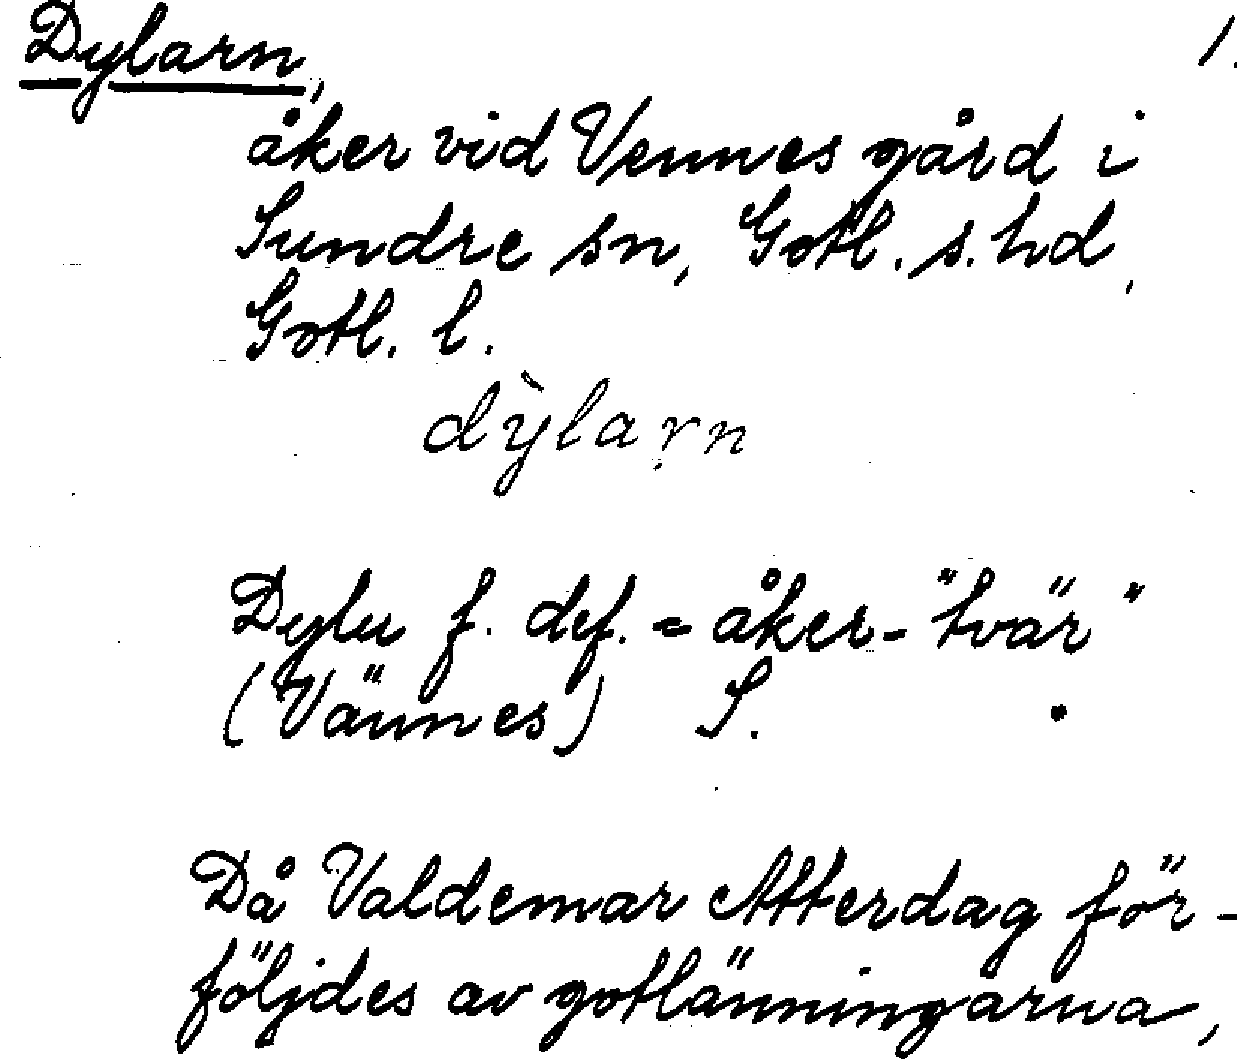 Dylarn, 1.
åker vid Vennes gård i
Sundre sn, Gotl. s. hd,
Gotl. l.
dỳlarn
Dylu f. def. = åker-"tvär"
(Vännes) S.
Då Valdemar Atterdag för-
följdes av gotlänningarna,